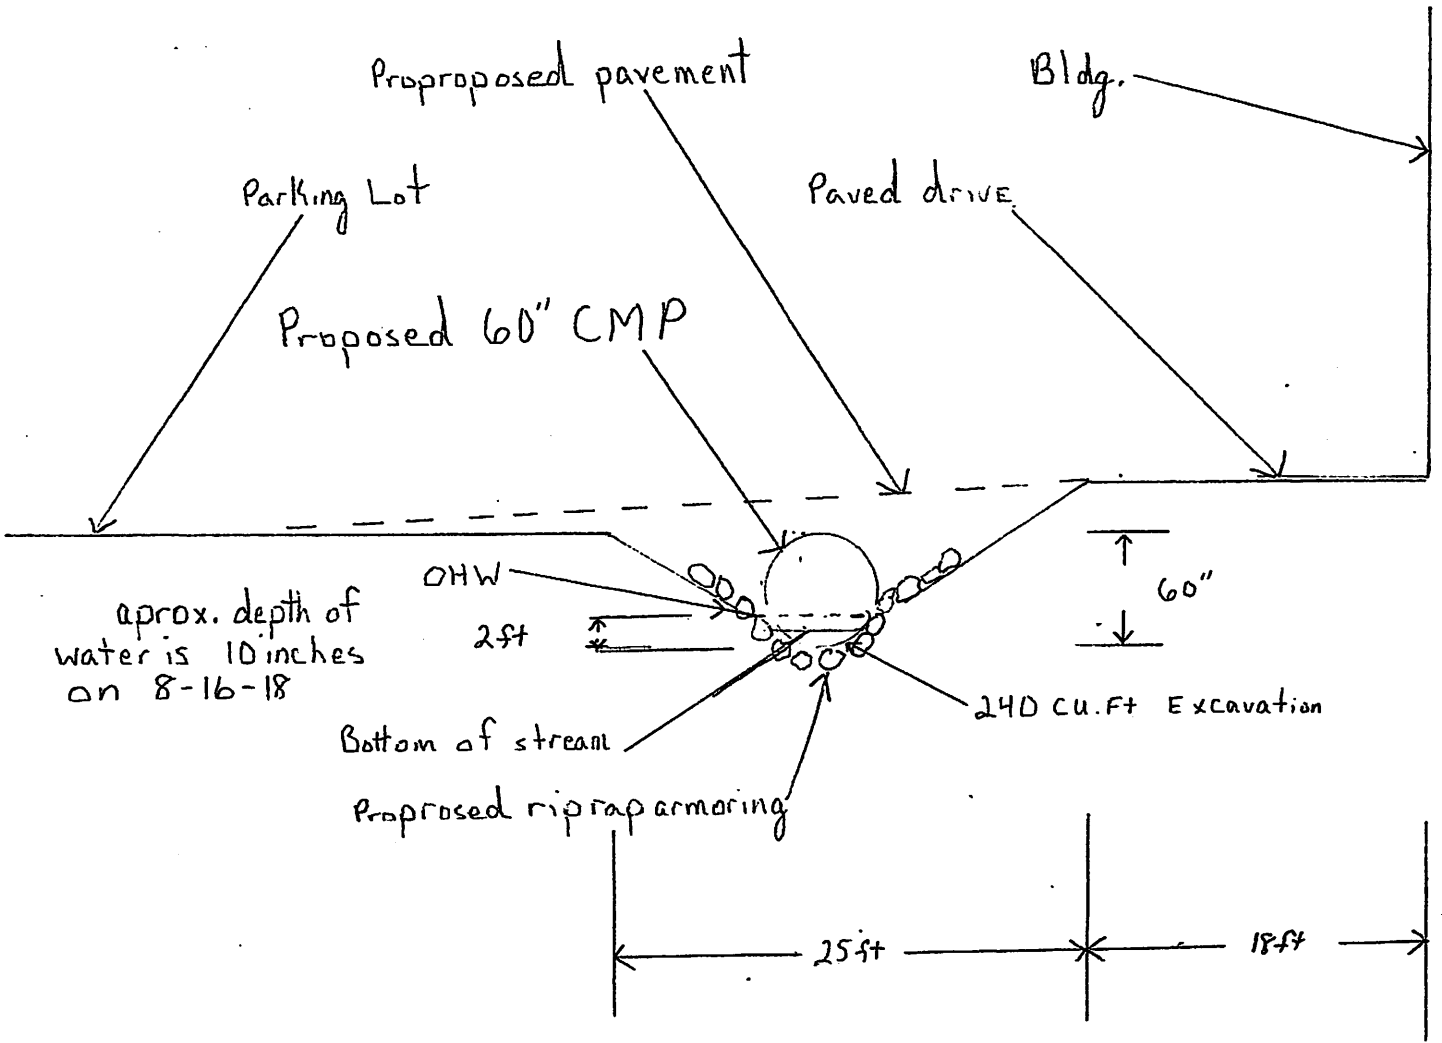 Proproposed pavement
Bldg.
Parking Lot
Paved drive
Proposed 60" CMP
OHW
60"
aprox. depth of
water is 10 inches
on 8-16-18
2ft
240 cu.Ft Excavation
Bottom of stream
Proprosed riprap armoring
25ft
18ft